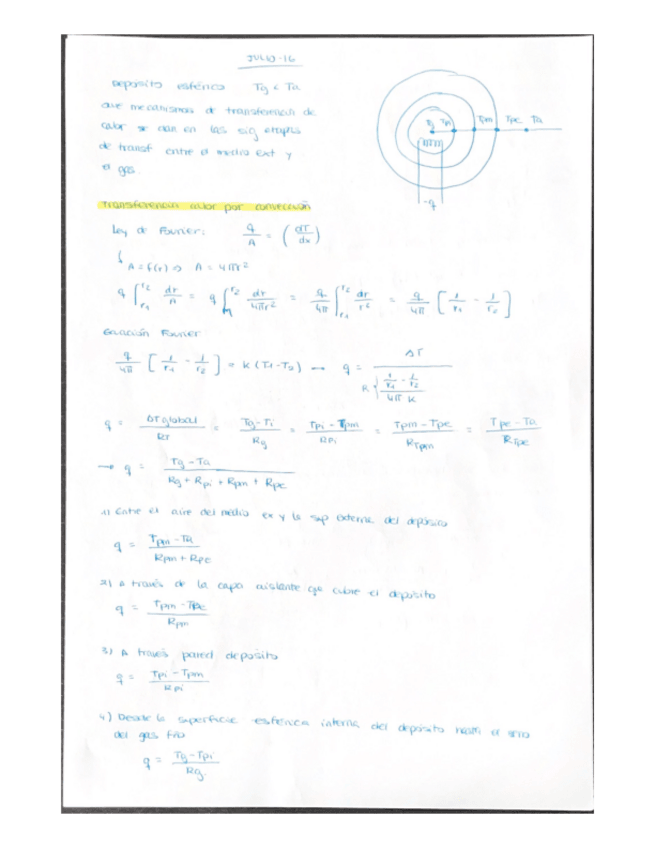 JULIO-16
Deposito esférico Tg < Ta
que mecanismos de transferencia de
calor se dan en las sig etapas
de transf entre el medio ext y
el gas.
Tg Tpi Tpm Tpe Ta
-q
Transferencia calor por convección
Ley de Fourier: q/A = (dT/dx)
A = f(r) => A = 4πr²
q ∫r1^r2 dr/A = q ∫r1^r2 dr/4πr² = q/4π ∫r1^r2 dr/r² = q/4π [1/r1 - 1/r2]
Ecuación Fourier
q/4π [1/r1 - 1/r2] = K (T1-T2) → q = ΔT / R { (1/r1 - 1/r2) / 4π K
q = ΔT global/RT = Tg - Ti/Rg = Tpi - Tpm/Rpi = Tpm - Tpe/RTpm = Tpe - Ta/RTpe
→ q = Tg - Ta / Rg + Rpi + Rpm + Rpe
1) Entre el aire del medio ex y la sup externa del depósito
q = Tpm - Ta / Rpm + Rpe
2) A través de la capa aislante que cubre el depósito
q = Tpm - Tpe / Rpm
3) A través pared deposito
q = Tpi - Tpm / Rpi
4) Desde la superficie esférica interna del depósito hasta el seno
del gas frío
q = Tg - Tpi / Rg.